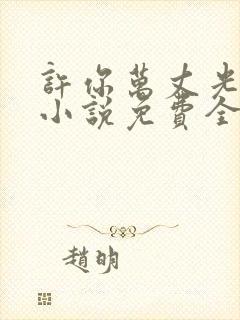 許你萬丈光
小說免費全
趙明